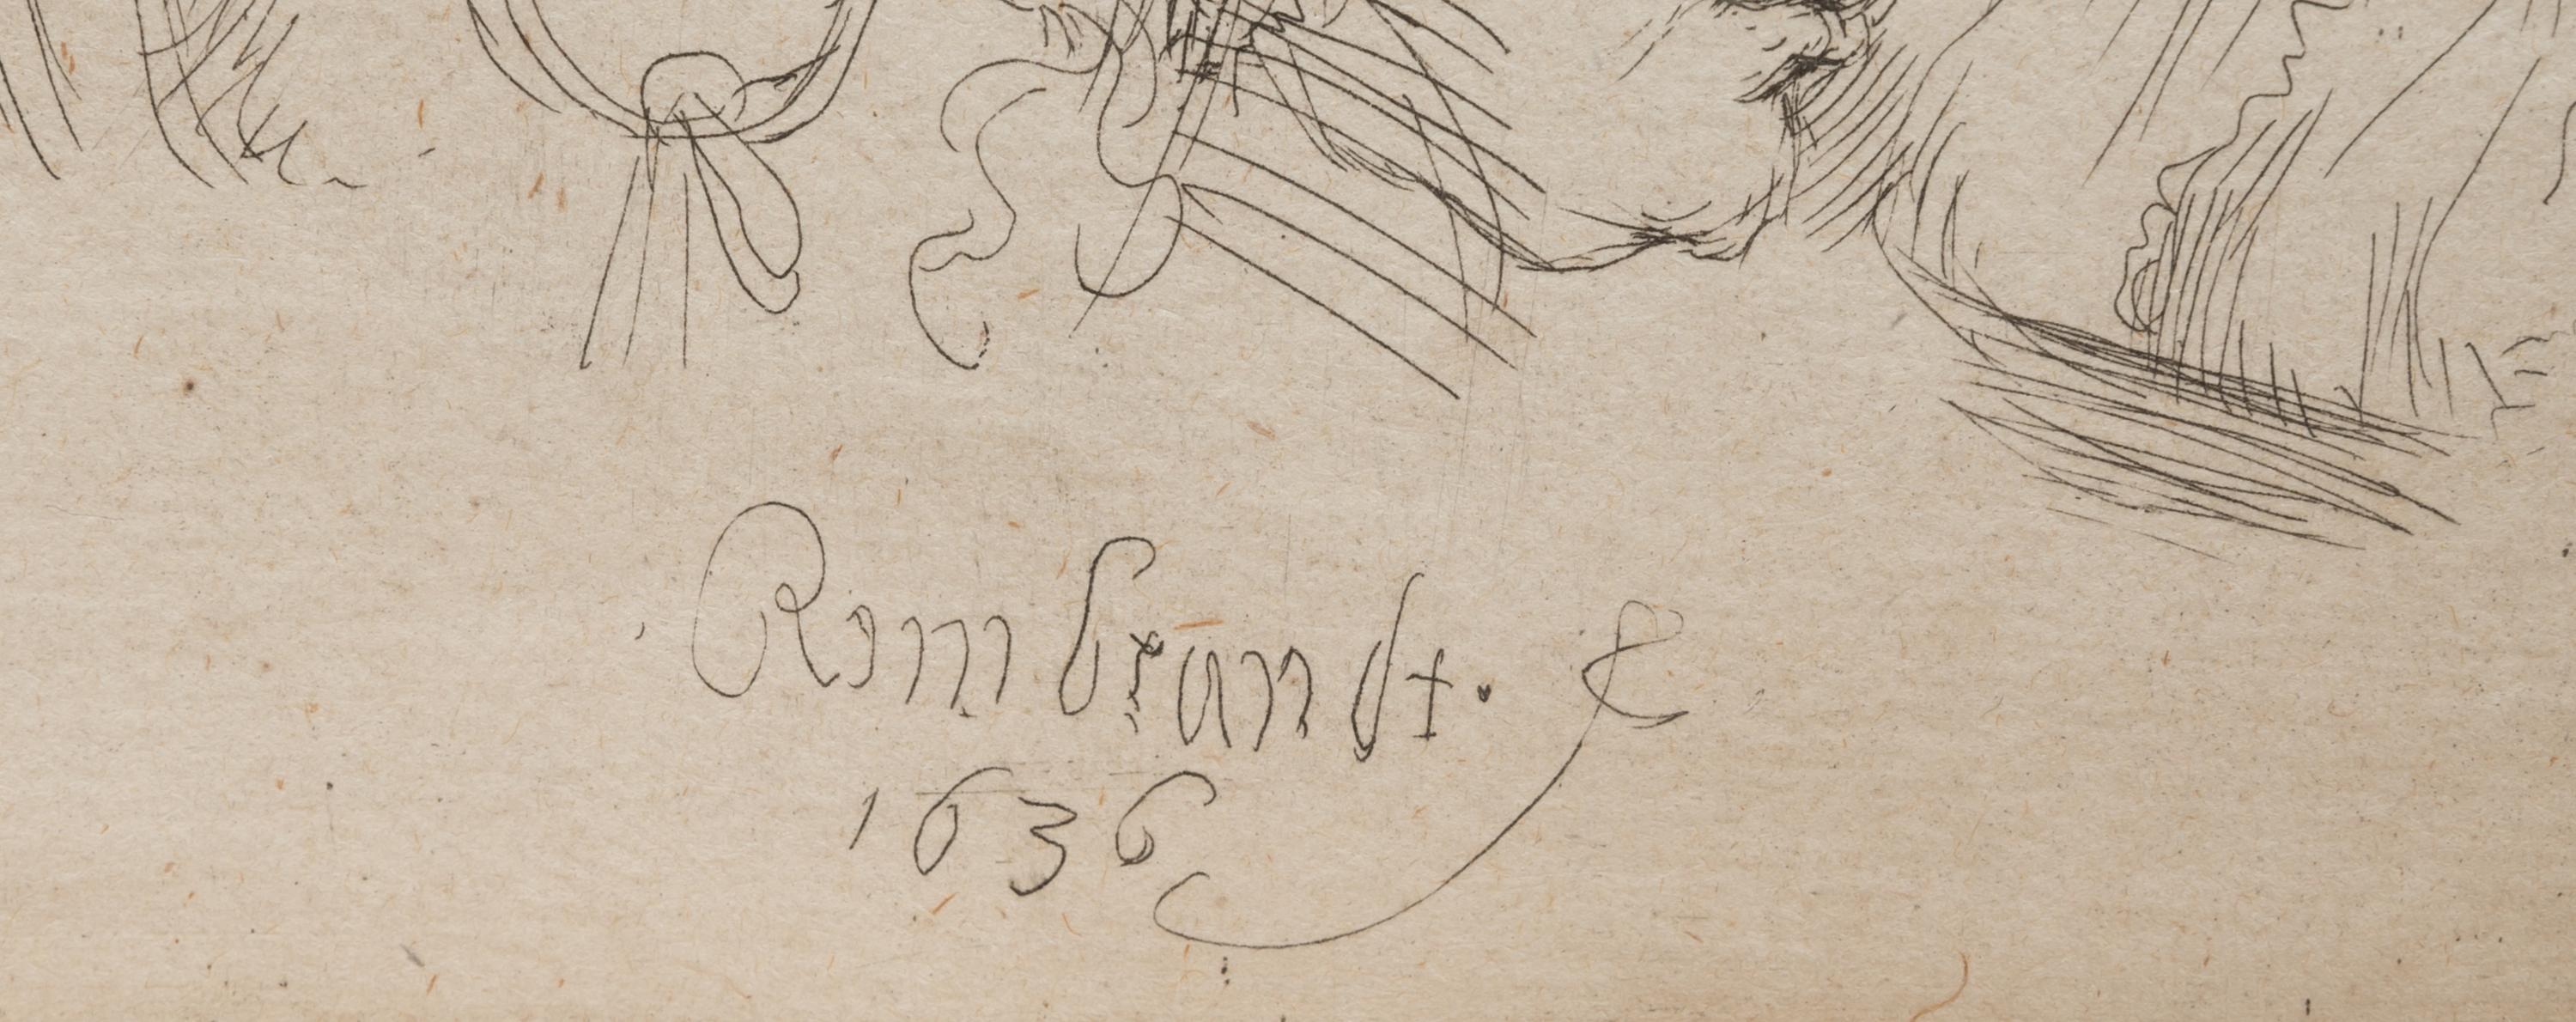 Rembrandt. f
1636